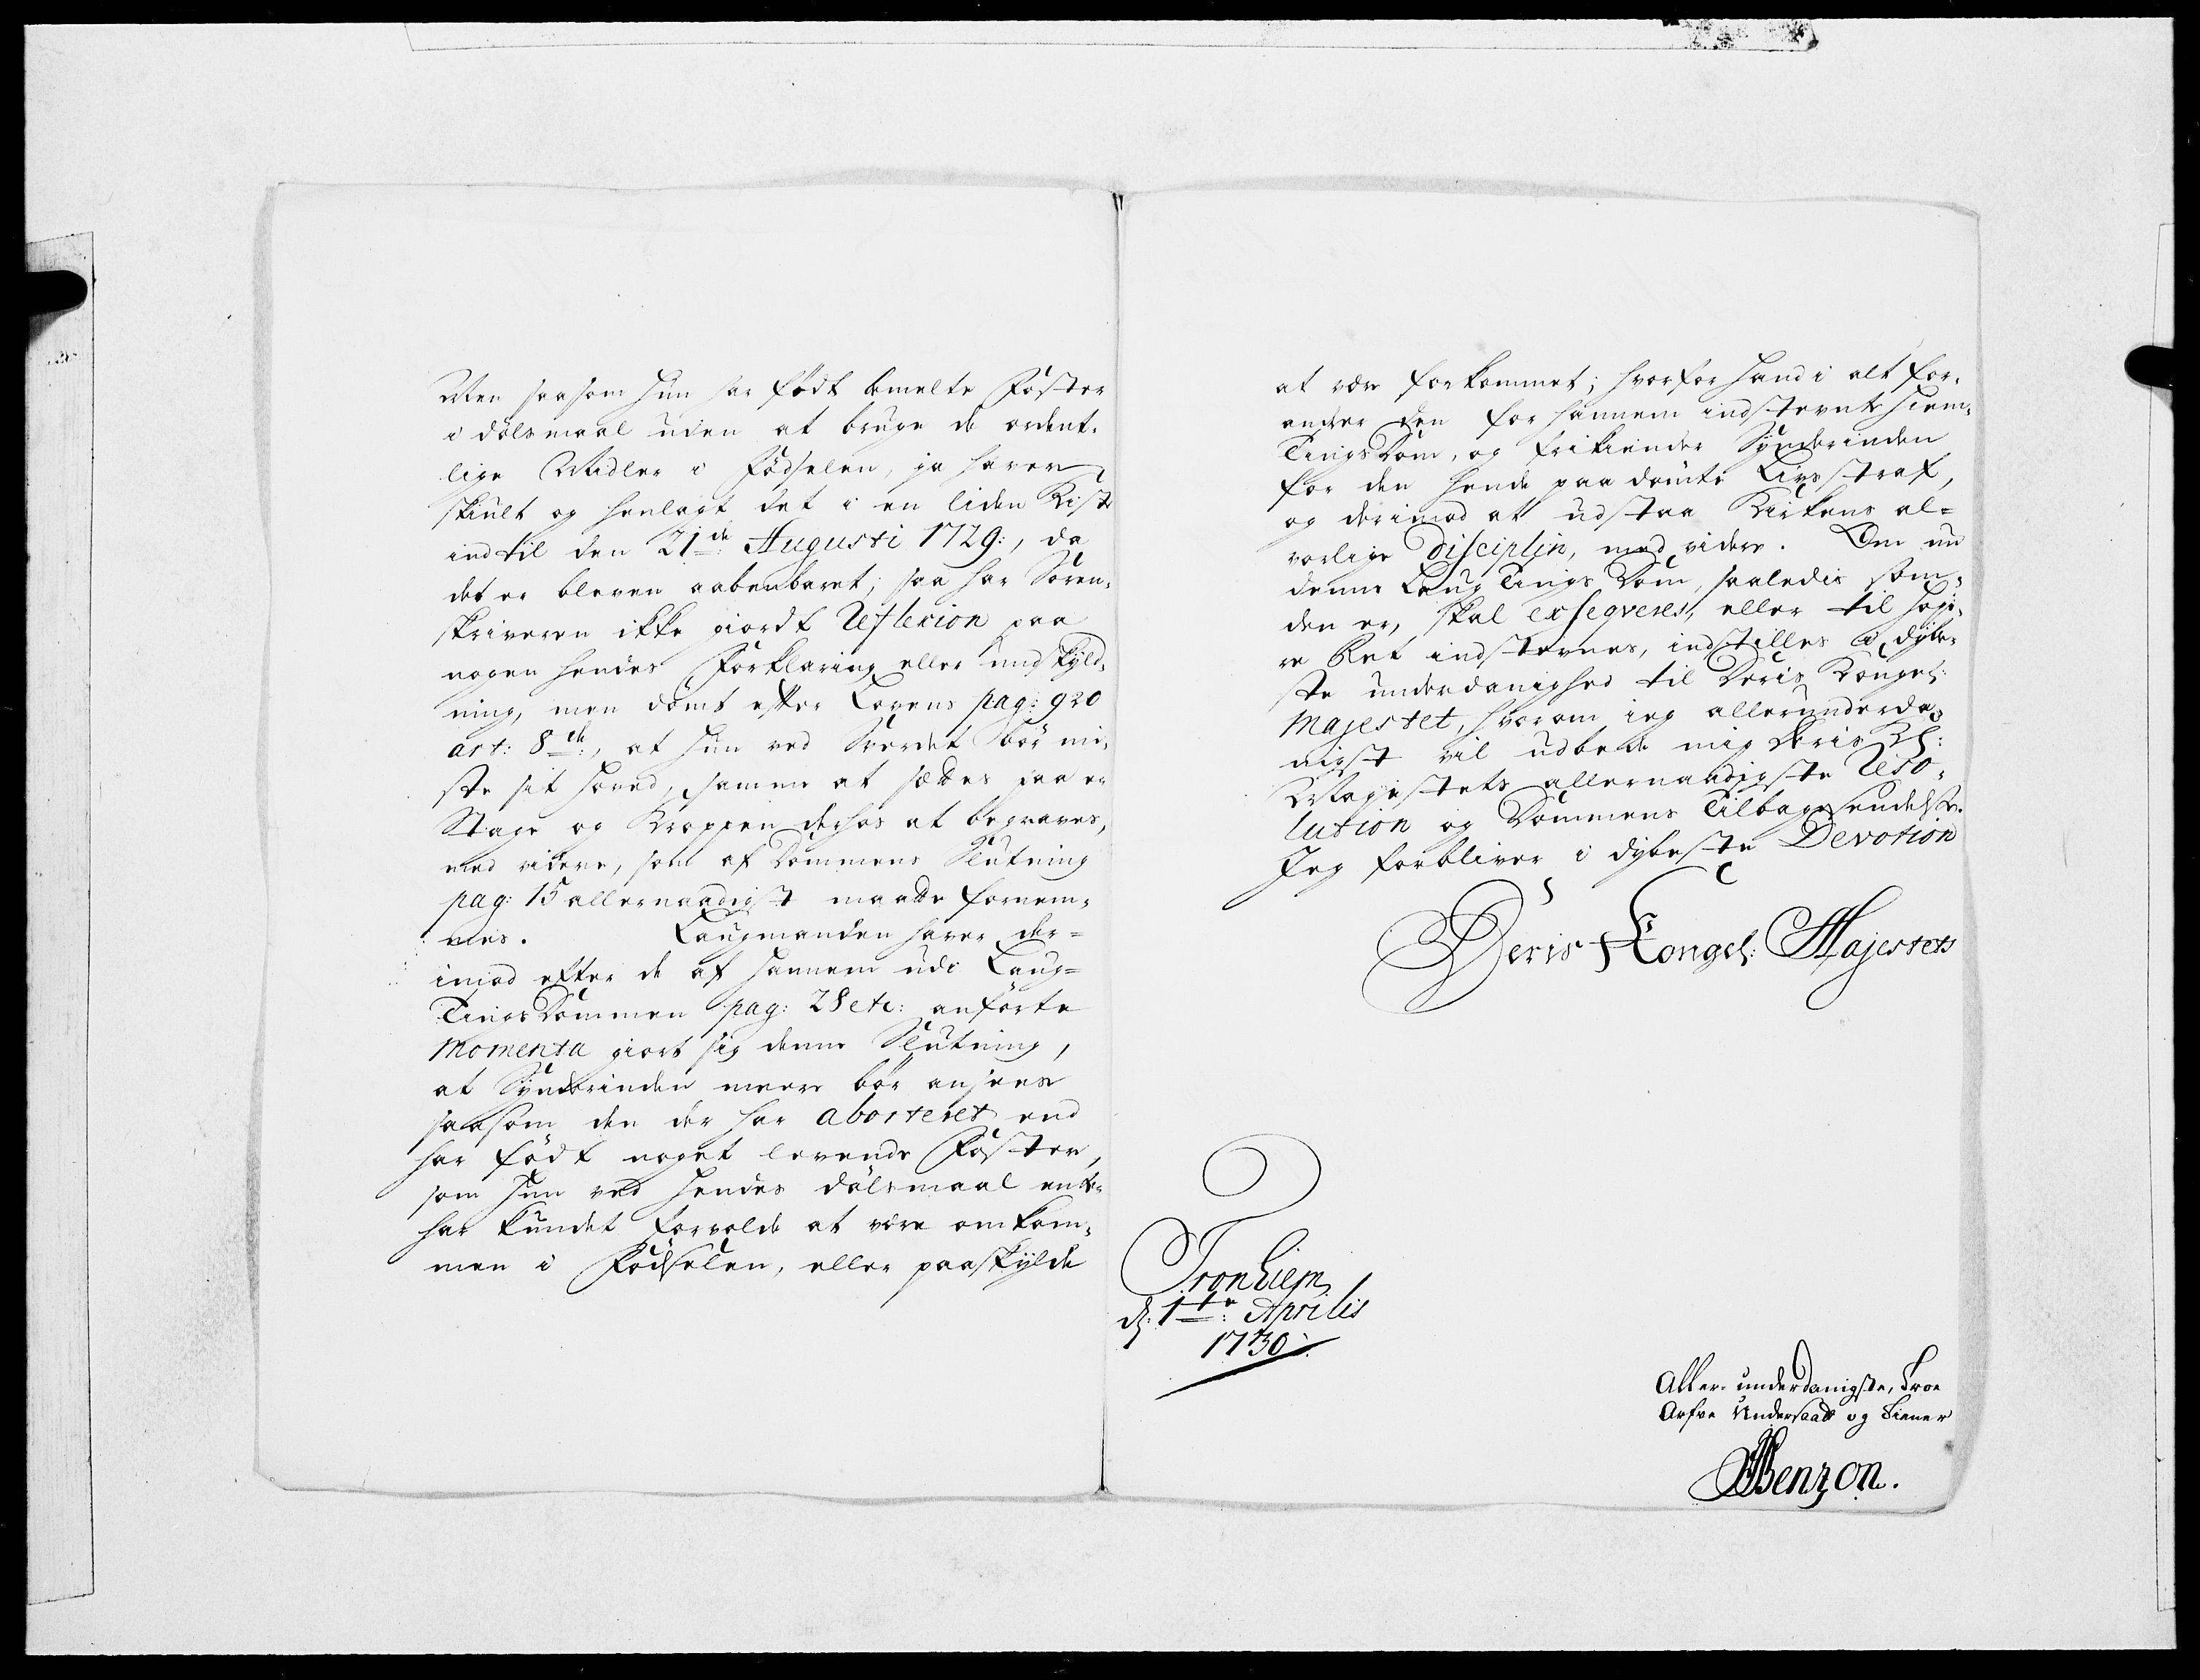 Men saasom hun har födt bemelte Foster
i dölsmaal uden at bruge de ordent-
lige Midler i Födselen, ja haver
skiult og henlagt det i en liden Kiste
indtil den 21de: Augusti 1729:, da
det er bleven aabenbaret; saa har Soren-
skriveren ikke giordt Reflexion paa
nogen hendes Forklaring eller undskyld-
ning, men dömt efter Lovens pag: 920
art: 8de:, at hun ved Sverdet bör mi-
ste sit Hoved, samme at sættes paa en
Stage og Kroppen derhos at begraves,
med videre, som af Dommens Slutning
pag: 15 allernaadigst maatte fornem-
mes. Laugmanden haver der=
imod efter de af hannem udi Laug=
TingsDommen pag: 28 etc: anförte
Momenta giort sig denne Slutning,
at Synderinden meere bör ansees
saasom den der har aborteret end
har födt noget levende Foster,
som hun ved hendes dölsmaal enten
har kundet forvolde at være omkom-
men i Födselen, eller paaskylde
at være forkommet; hvorfor hand i alt for-
andrer den for hannem indstevnte Hiem-
TingsDom, og frikiender Synderinden
for den hende paa dömte Livsstraf,
og derimod at udstaa Kirkens al=
vorlige Disciplin, med videre. Om nu
denne LaugTings Dom, saaledis som
den er, skal exseqveres, eller til høje-
re Ret indstevnes, indstilles i dybe-
ste underdanighed til Deris Kongel:
Majestet, hvorom jeg allerunderda-
nigst vil udbede mig Deris Kl:
Majestets allernaadigste Reso-
lution og Dommens Tilbagesendelse.
Jeg forbliver i dybeste Devotion
Deris Kongel: Majestets
Tronhiem
d: 1te: Aprilis
1730:
Aller-underdanigste, Troe
Arfve Undersaatt og Tiener
Benzon.